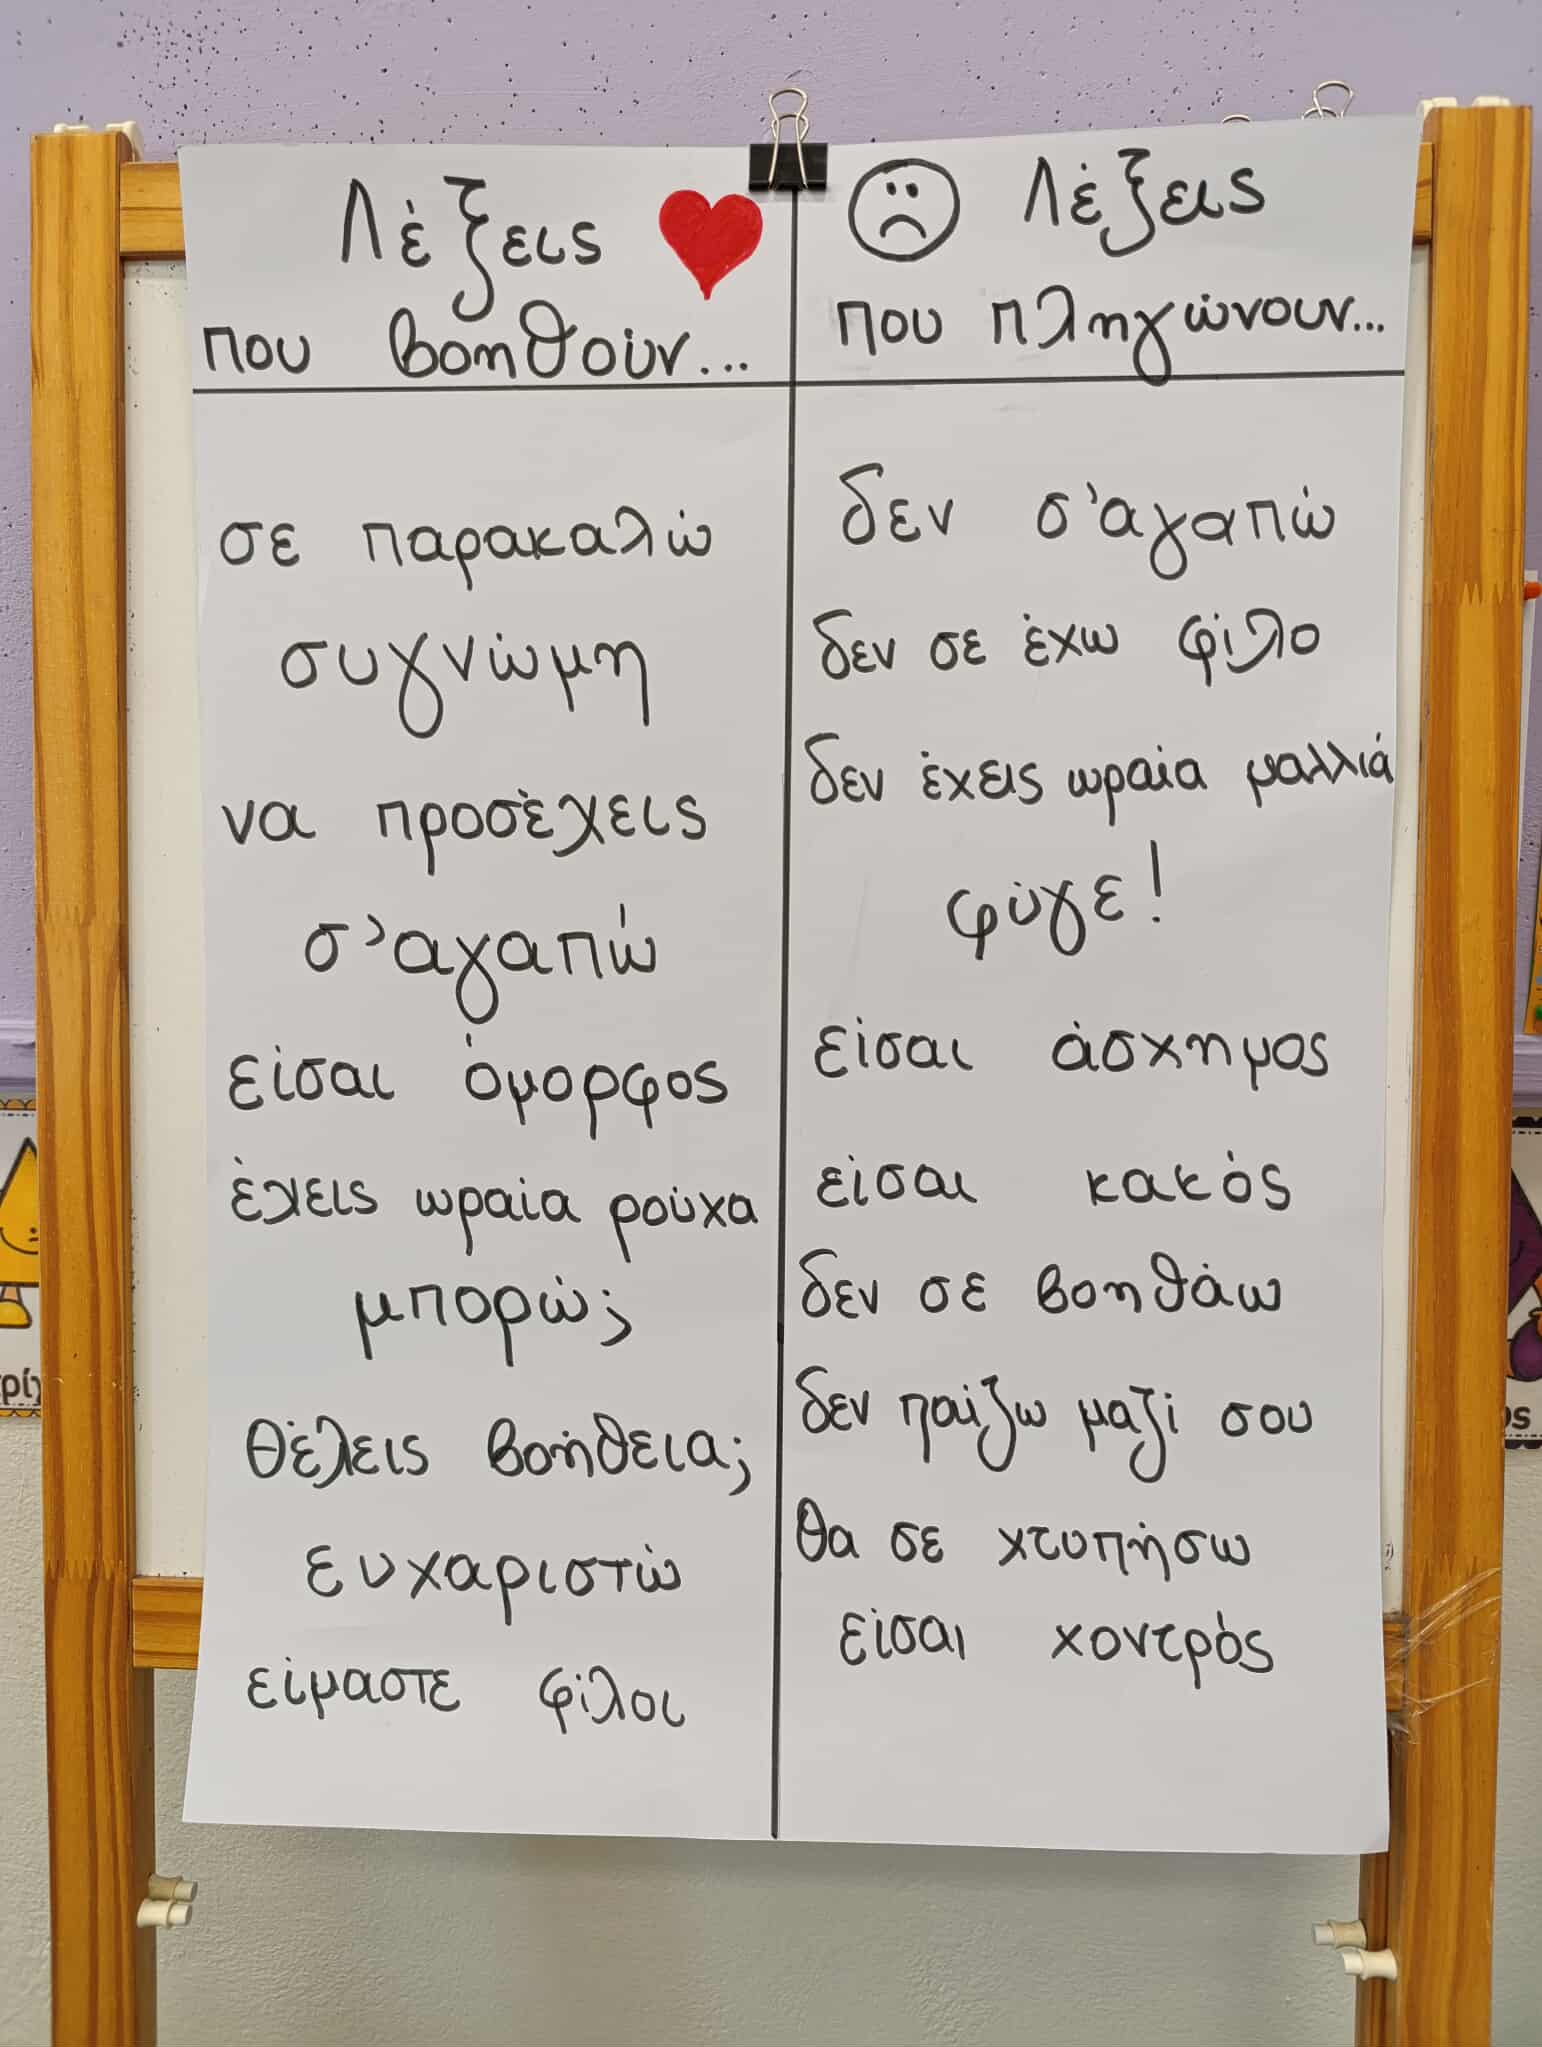 Λέξεις
που βοηθούν...
σε παρακαλώ
συγνώμη
να προσέχεις
σ'αγαπώ
είσαι όμορφος
έχεις ωραία ρούχα
μπορώ;
θέλεις βοήθεια;
ευχαριστώ
είμαστε φίλοι
Λέξεις
που πληγώνουν...
δεν σ'αγαπώ
δεν σε έχω φίλο
δεν έχεις ωραία μαλλιά
φύγε!
είσαι άσχημος
είσαι κακός
δεν σε βοηθάω
δεν παίζω μαζί σου
θα σε χτυπήσω
είσαι χοντρός